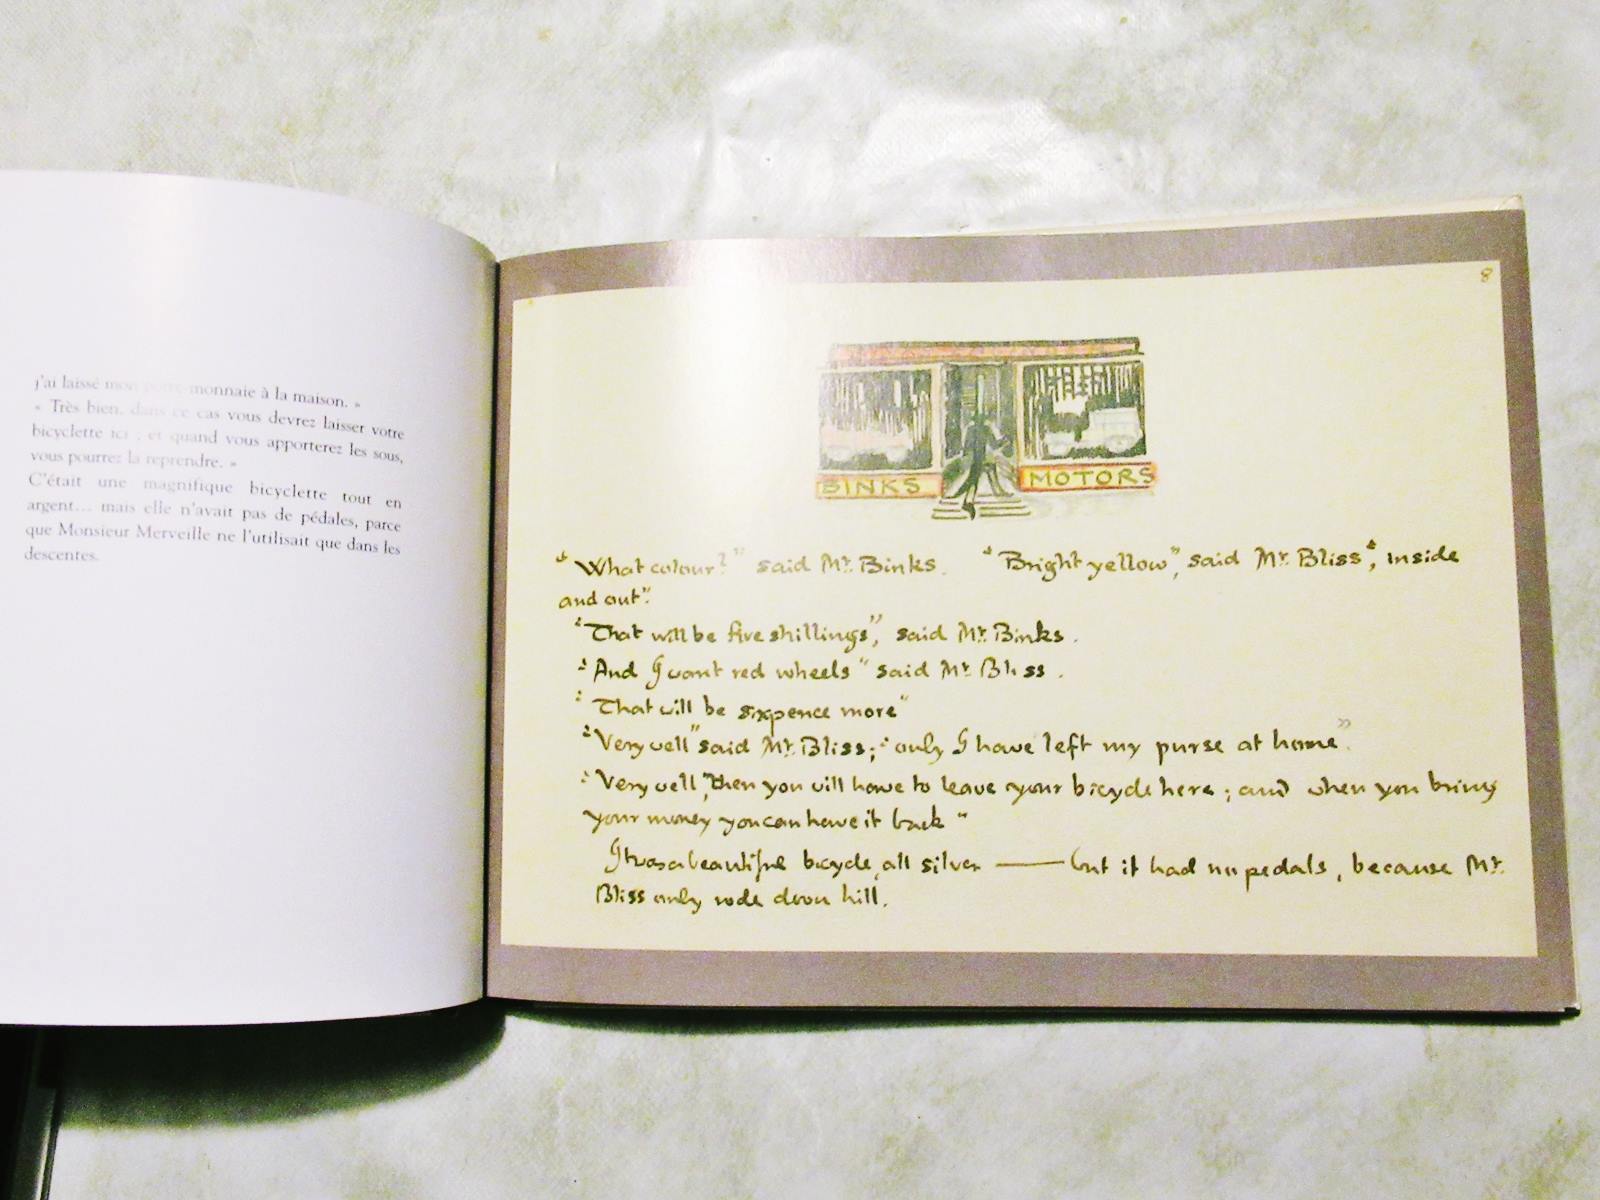 j'ai laissé mon porte-monnaie à la maison. »
« Très bien, dans ce cas vous devrez laisser votre
bicyclette ici ; et quand vous apporterez les sous,
vous pourrez la reprendre. »
C'était une magnifique bicyclette tout en
argent... mais elle n'avait pas de pédales, parce
que Monsieur Merveille ne l'utilisait que dans les
descentes.
8
BINKS MOTORS
"What colour?" said Mr. Binks. "Bright yellow", said Mr. Bliss, "inside
and out".
"That will be five shillings", said Mr. Binks.
"And I want red wheels" said Mr. Bliss.
"That will be sixpence more"
"Very well" said Mr. Bliss; "only I have left my purse at home".
"Very well, then you will have to leave your bicycle here; and when you bring
your money you can have it back"
It was a beautiful bicycle, all silver — but it had no pedals, because Mr.
Bliss only rode down hill.